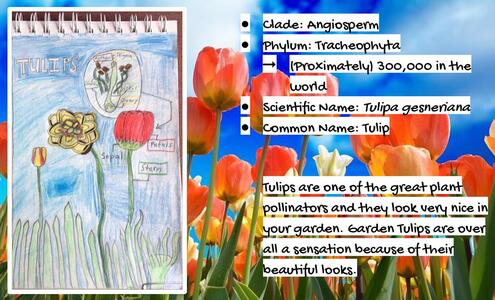 TULIPS
Petals
Sepal
Stem
Clade: Angiosperm
Phylum: Tracheophyta
→ (Proximately) 300,000 in the
world
Scientific Name: Tulipa gesneriana
Common Name: Tulip
Tulips are one of the great plant
pollinators and they look very nice in
your garden. Garden Tulips are over
all a sensation because of their
beautiful looks.